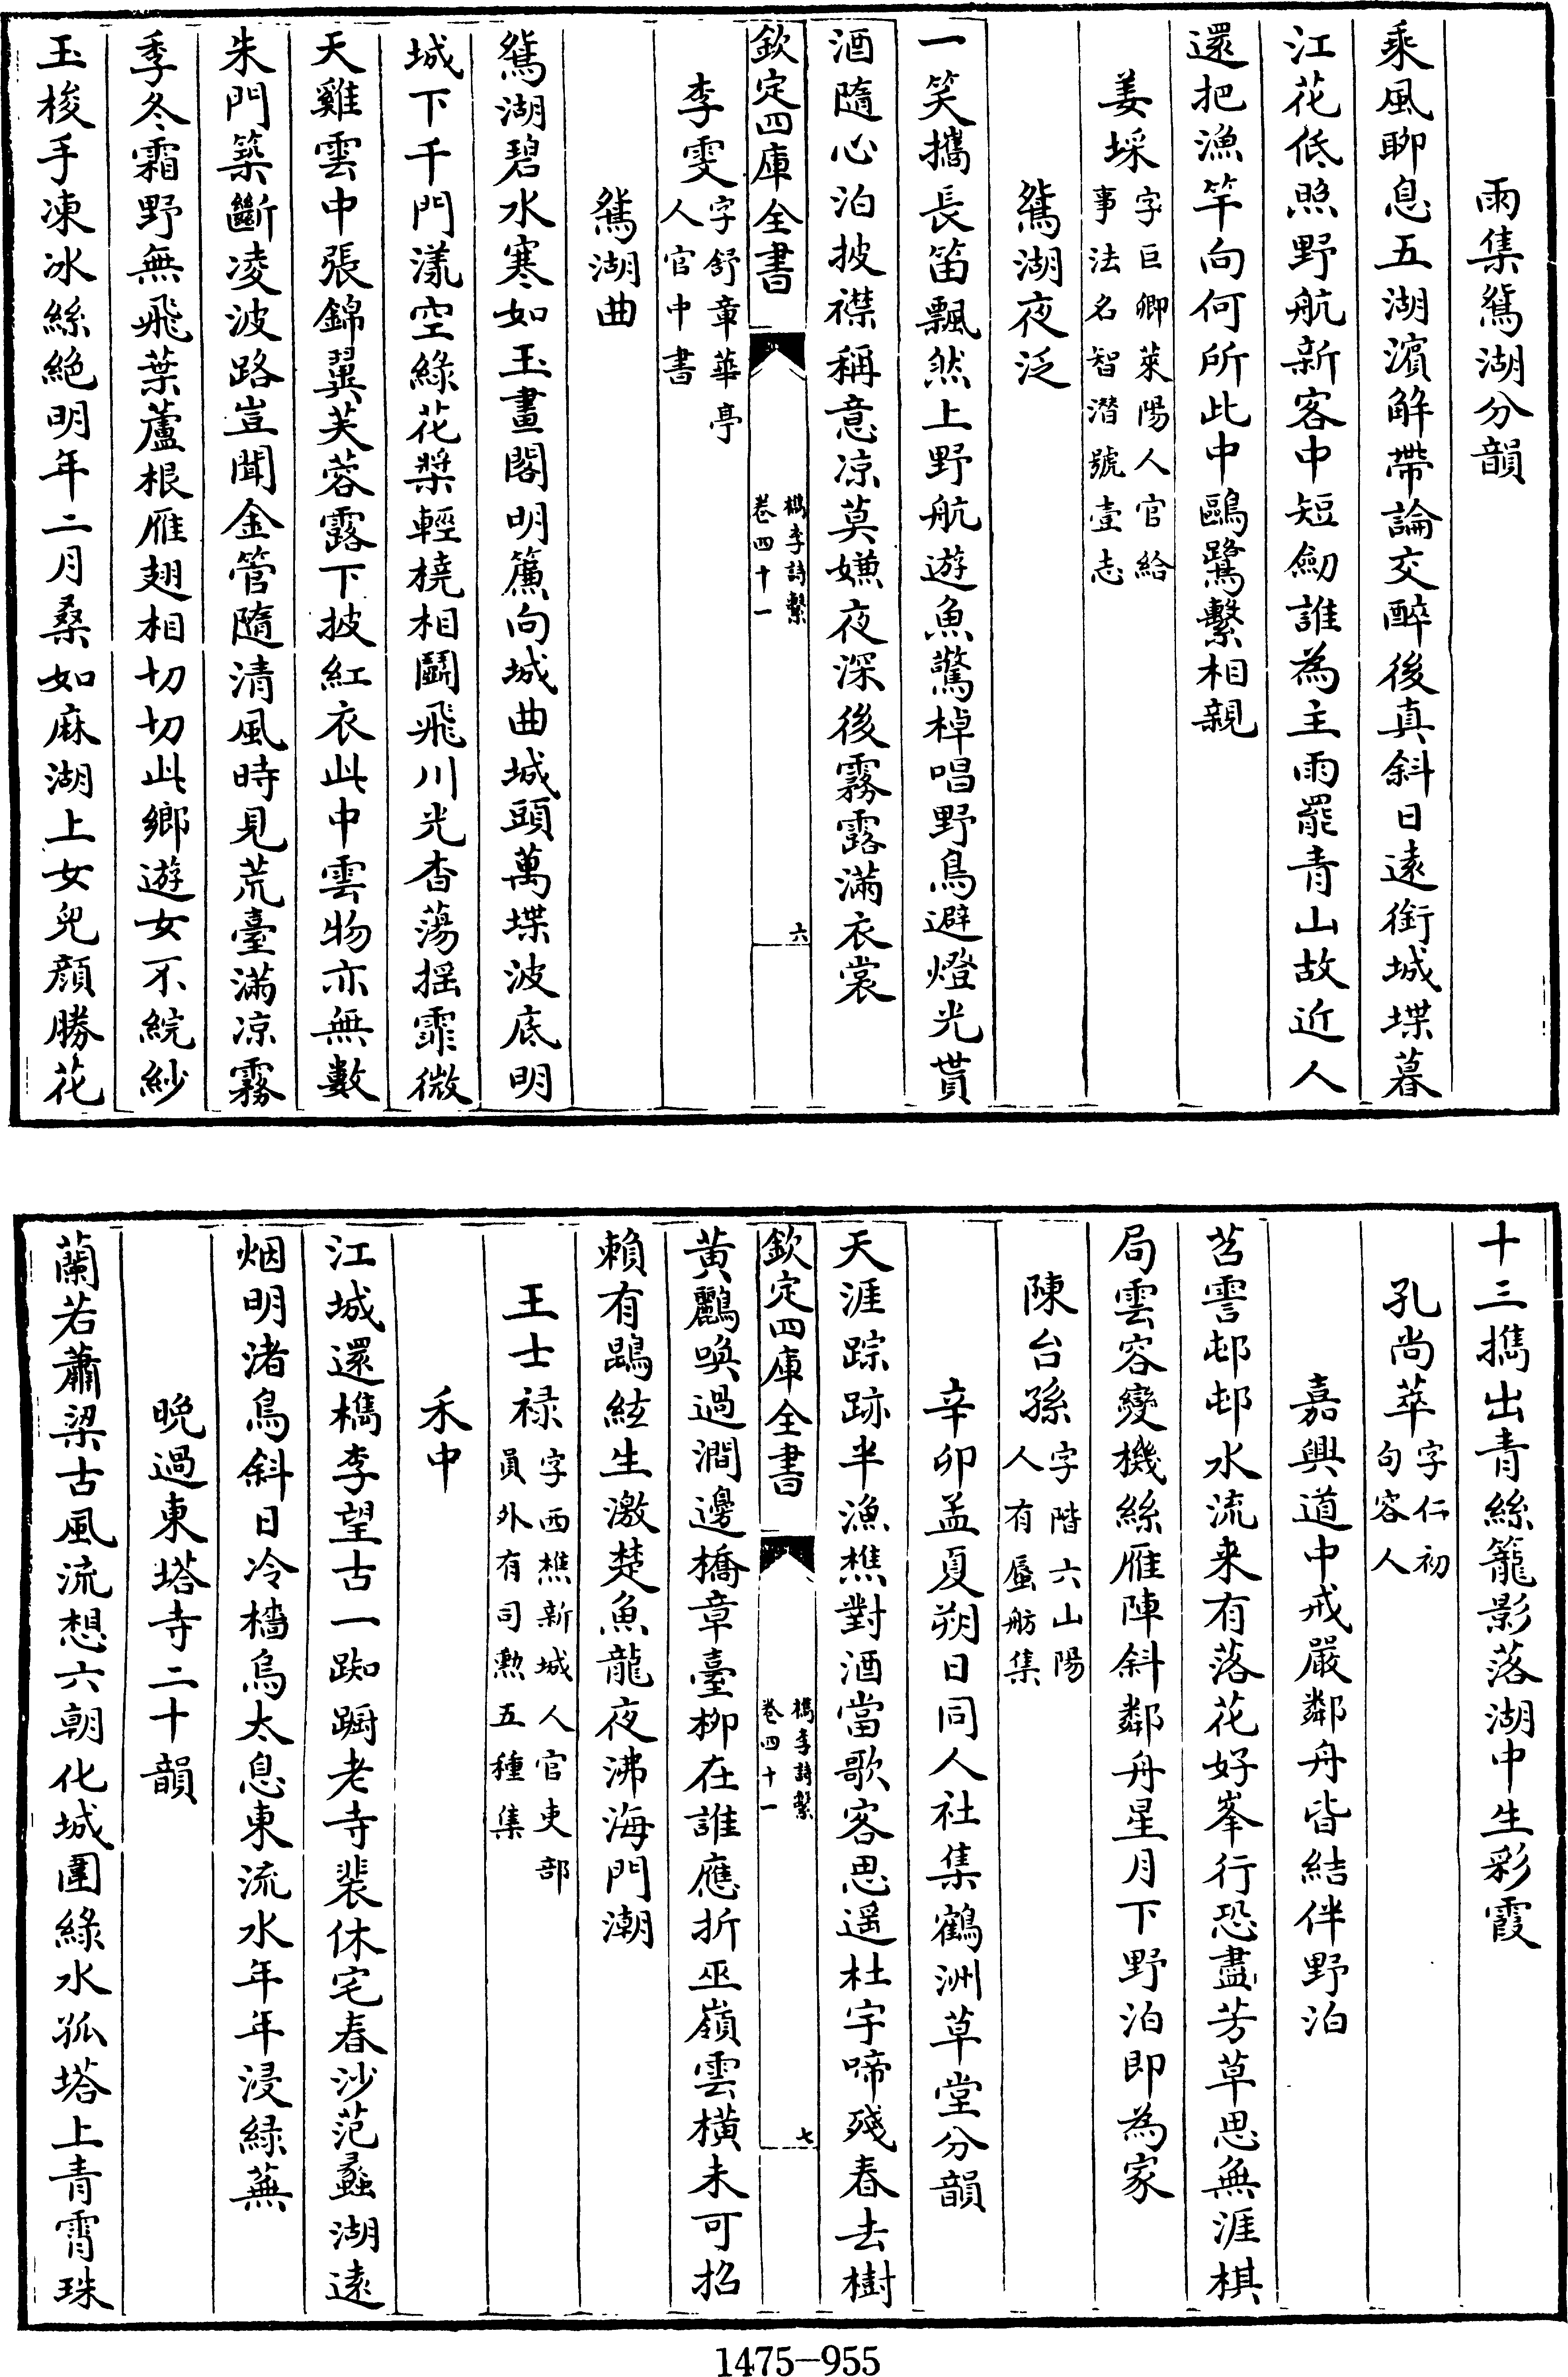 雨集鴛湖分韻
乘風聊息五湖濱解帶論交醉後真斜日遠銜城堞暮
江花低照野航新客中短劒誰為主雨罷青山故近人
還把漁竿向何所此中鷗鷺繫相親
姜埰字巨卿萊陽人官給事法名智潛號壹志
鴛湖夜泛
一笑攜長笛飄然上野航遊魚驚棹唱野鳥避燈光貰
酒隨心泊披襟稱意凉莫嫌夜深後霧露滿衣裳
欽定四庫全書 檇李詩繫卷四十一 六
李雯字舒章華亭人官中書
鴛湖曲
鴛湖碧水寒如玉畫閣明簾向城曲城頭萬堞波底明
城下千門漾空綠花槳輕橈相鬬飛川光杳蕩揺霏微
天雞雲中張錦翼芙蓉露下披紅衣此中雲物亦無數
朱門築斷凌波路豈聞金管隨清風時見荒臺滿凉霧
季冬霜野無飛葉蘆根雁翅相切切此鄉遊女不綄紗
玉梭手凍冰絲絶明年二月桑如麻湖上女兒顔勝花
十三攜出青絲籠影落湖中生彩霞
孔尚萃字仁初句容人
嘉興道中戒嚴鄰舟皆結伴野泊
苕霅邨邨水流来有落花好峯行恐盡芳草思無涯棋
局雲容變機絲雁陣斜鄰舟星月下野泊即為家
陳台孫字階六山陽人有蜃舫集
辛卯孟夏朔日同人社集鶴洲草堂分韻
天涯踪跡半漁樵對酒當歌客思遥杜宇啼殘春去樹
欽定四庫全書 檇李詩繫卷四十一 七
黄鸝喚過澗邊橋章臺柳在誰應折巫嶺雲横未可招
賴有鵾絃生激楚魚龍夜沸海門潮
王士禄字西樵新城人官吏部員外有司勲五種集
禾中
江城還檇李望古一踟蹰老寺裴休宅春沙范蠡湖遠
烟明渚鳥斜日冷檣烏太息東流水年年浸緑蕪
晩過東塔寺二十韻
蘭若蕭梁古風流想六朝化城圍綠水孤塔上青霄珠
1475-955